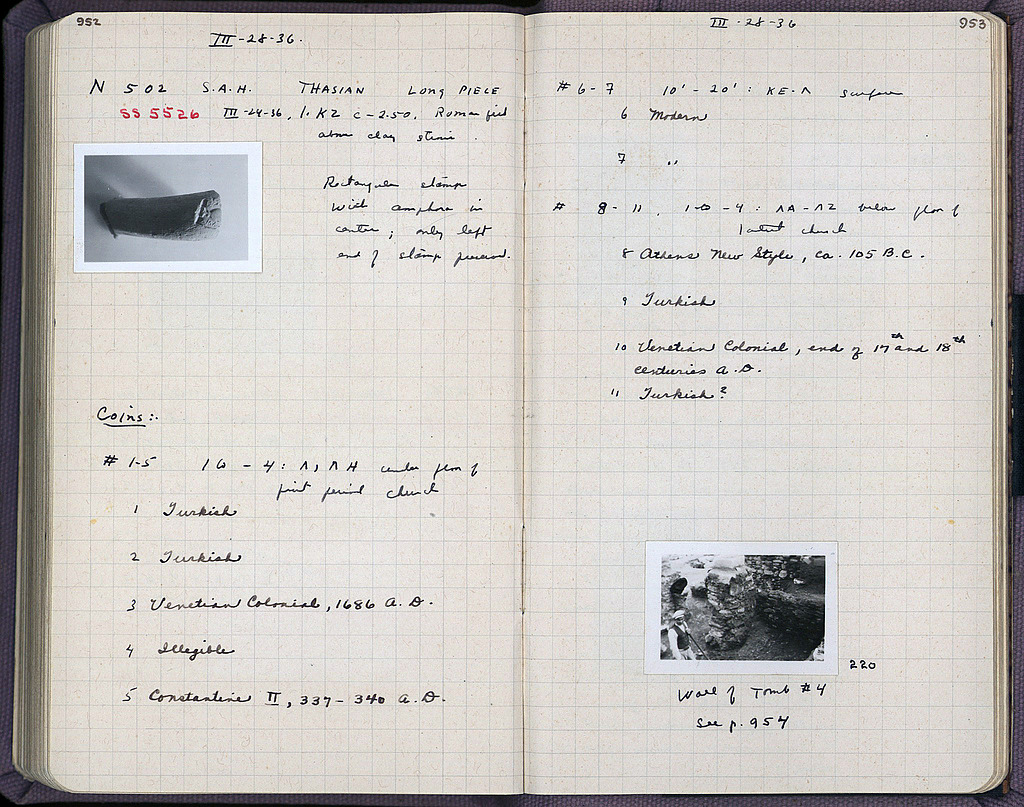 952
III-28-36.
N 502 S.A.H. THASIAN LONG PIECE
SS 5526 III-24-36, K2 c-2.50, Roman fill
above clay
Rectangular stamp
with amphora in
center; only left
end of stamp preserved.
Coins:.
# 1-5 - 4: Λ, ΛΗ under floor of
first period church
1 Turkish
2 Turkish
3 Venetian Colonial, 1686 A.D.
4 Illegible
5 Constantine II, 337-340 A.D.
III-28-36
953
# 6-7 10' - 20': ΚΕ-Λ surface
6 Modern
7 "
# 8-11, - 4: ΛΑ-ΛΖ below floor of
latest church
8 Athens New Style, ca. 105 B.C.
9 Turkish
10 Venetian Colonial, end of 17th and 18th
centuries A.D.
11 Turkish?
220
Wall of Tomb #4
See p. 954